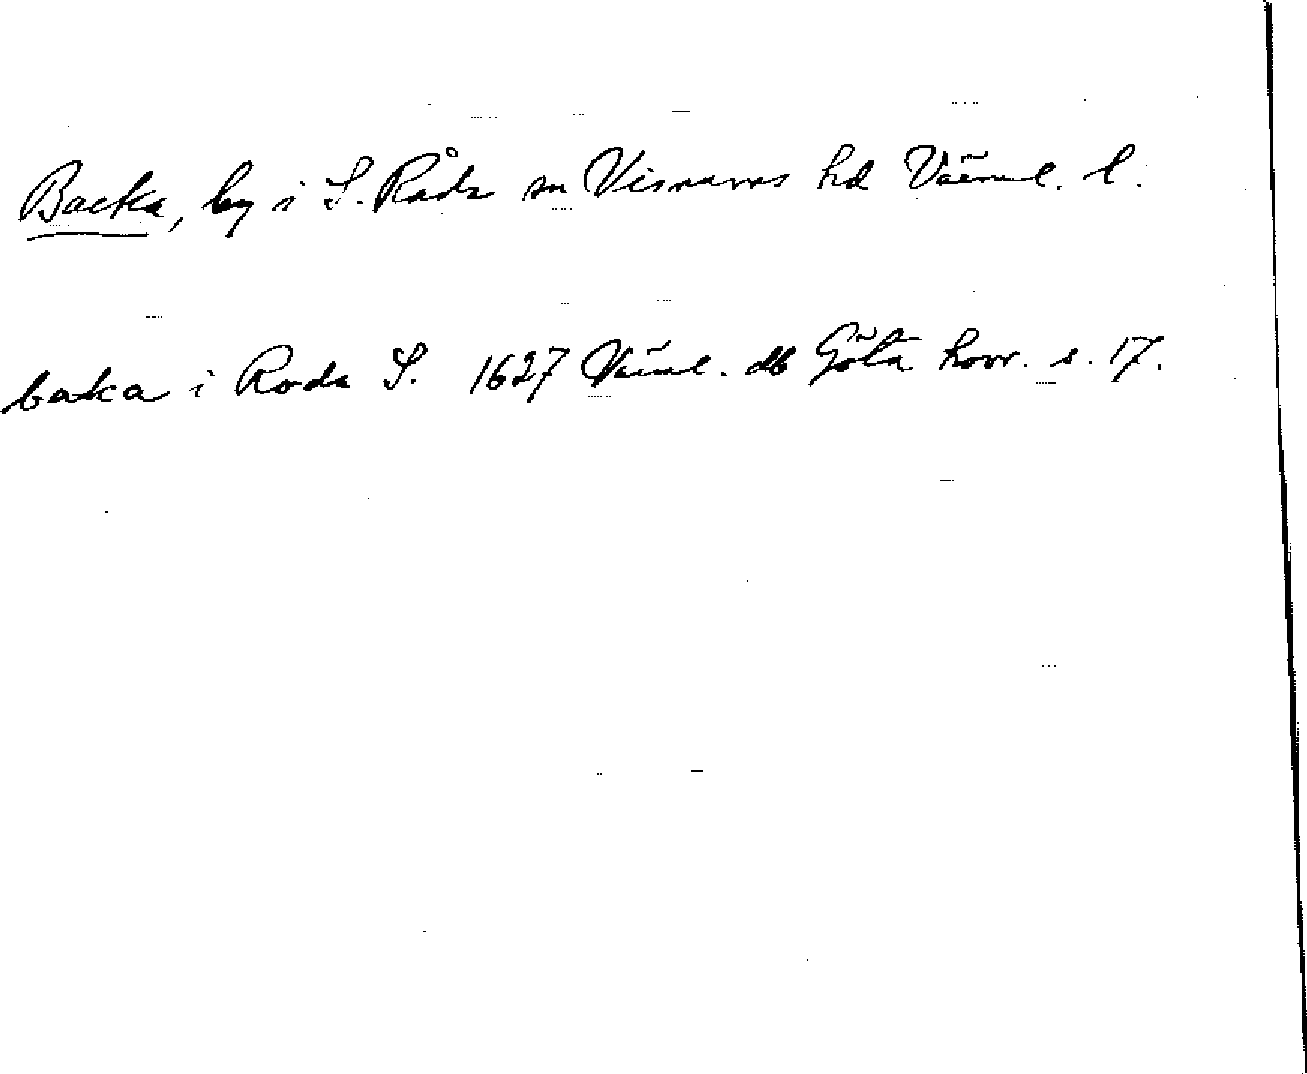 Backa, by i S. Råda sn Visnums hd Värml. l.
baka i Roda S. 1627 Värml. db Göta hovr. s. 17.